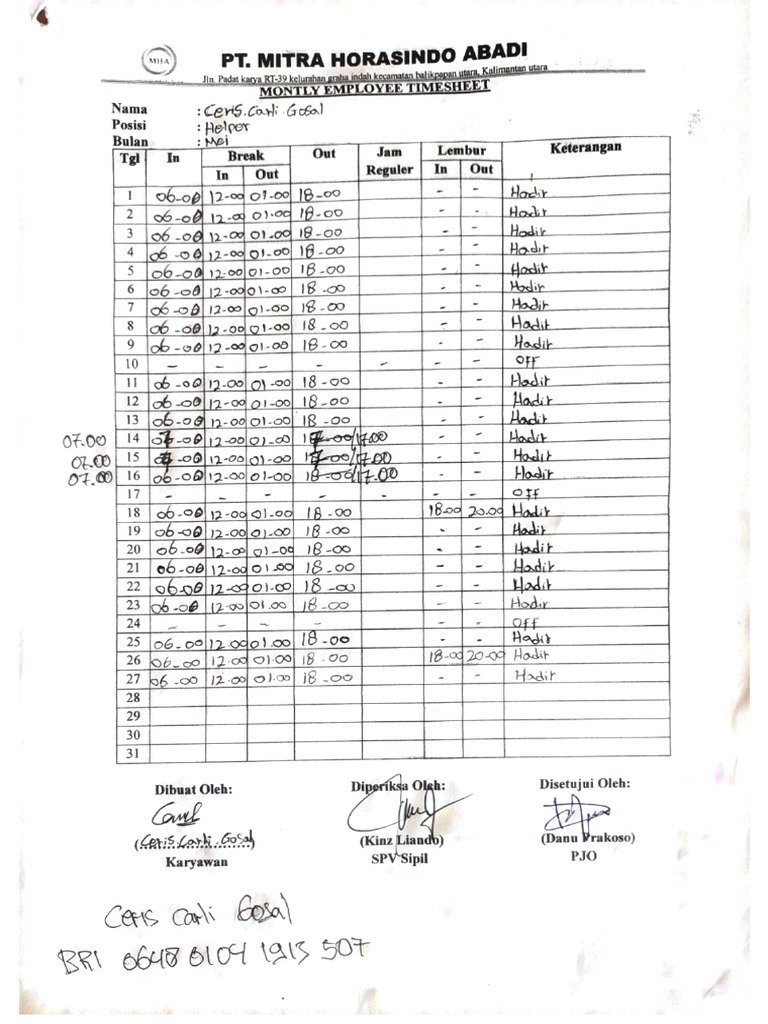 MHA
PT. MITRA HORASINDO ABADI
Jln. Padat karya RT-39 kelurahan graha indah kecamatan balikpapan utara, Kalimantan utara
MONTLY EMPLOYEE TIMESHEET
Nama : Ceris.Carli.Gosal
Posisi : Helper
Bulan : Mei
Tgl In Break Out Jam Reguler Lembur Keterangan
In Out In Out
1 06-00 12-00 01-00 18-00 - - Hadir
2 06-00 12-00 01-00 18-00 - - Hadir
3 06-00 12-00 01-00 18-00 - - Hadir
4 06-00 12-00 01-00 18-00 - - Hadir
5 06-00 12-00 01-00 18-00 - - Hadir
6 06-00 12-00 01-00 18-00 - - Hadir
7 06-00 12-00 01-00 18-00 - - Hadir
8 06-00 12-00 01-00 18-00 - - Hadir
9 06-00 12-00 01-00 18-00 - - Hadir
10 - - - - - - - Off
11 06-00 12-00 01-00 18-00 - - Hadir
12 06-00 12-00 01-00 18-00 - - Hadir
13 06-00 12-00 01-00 18-00 - - Hadir
07.00 14 12-00 01-00 /17.00 - - Hadir
07.00 15 12-00 01-00 /17.00 - - Hadir
07.00 16 06-00 12-00 01-00 18-00/17.00 - - Hadir
17 - - - - - - - Off
18 06-00 12-00 01-00 18-00 18-00 20.00 Hadir
19 06-00 12-00 01-00 18-00 - - Hadir
20 06-00 12-00 01-00 18-00 - - Hadir
21 06-00 12-00 01.00 18-00 - - Hadir
22 06-00 12-00 01-00 18-00 - - Hadir
23 06-00 12-00 01.00 18-00 - - Hadir
24 - - - - - - Off
25 06.00 12.00 01.00 18-00 - - Hadir
26 06-00 12.00 01.00 18-00 18-00 20-00 Hadir
27 06-00 12.00 01.00 18-00 - - Hadir
28
29
30
31
Dibuat Oleh: Diperiksa Oleh: Disetujui Oleh:
(Ceris.Carli.Gosal) (Kinz Liando) (Danu Prakoso)
Karyawan SPV Sipil PJO
Ceris Carli Gosal
BRI 0648 0104 1913 507